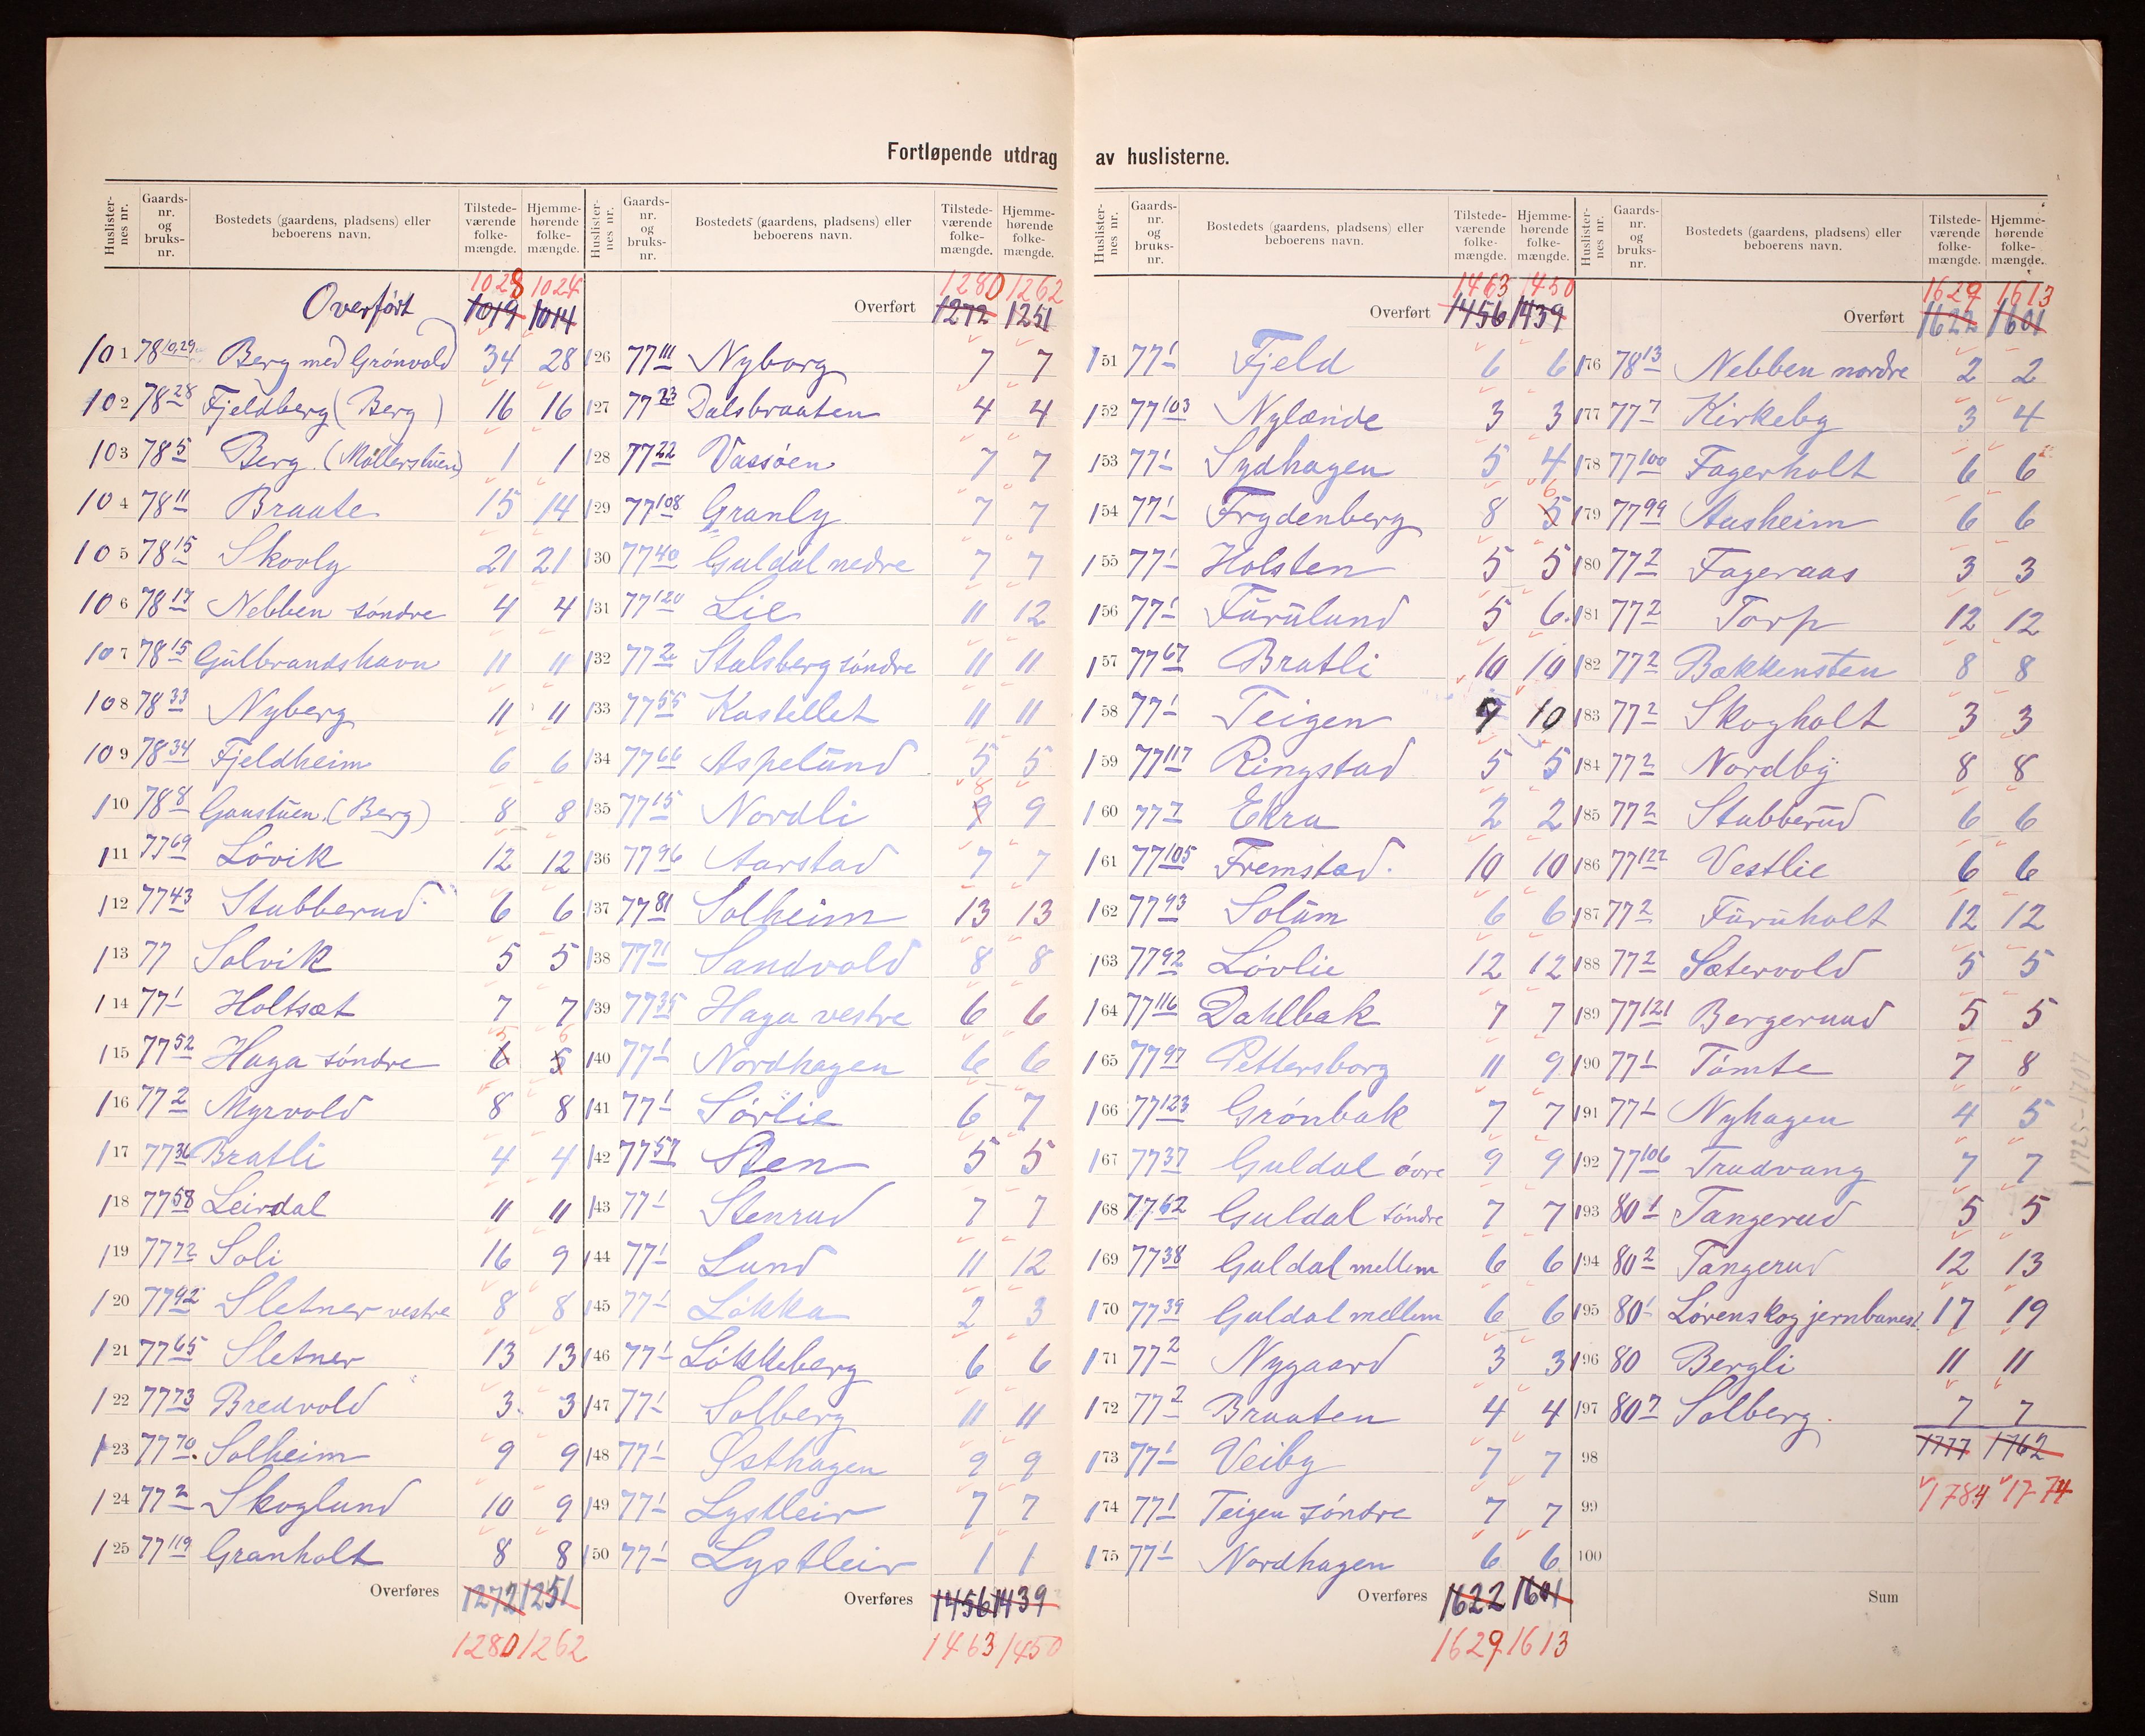 Fortløpende utdrag av huslisterne.
Huslister-nes nr. Gaards-nr. og bruks-nr. Bostedets (gaardens, pladsens) eller beboerens navn. Tilstede-værende folke-mængde. Hjemme-hørende folke-mængde.
1028 1024
Overført 1019 1014
101 78 10,29 Berg med Grönvold 34 28
102 78 28 Fjeldberg (Berg) 16 16
103 78 5 Berg. (Möllerstuen) 1 1
104 78 11 Braate 15 14
105 78 15 Skovly 21 21
106 78 17 Nebben söndre 4 4
107 78 15 Gulbrandshavn 11 11
108 78 33 Nyberg 11 11
109 78 34 Fjeldheim 6 6
110 78 8 Gaustuen (Berg) 8 8
111 77 69 Lövik 12 12
112 77 43 Stubberud 6 6
113 77 Solvik 5 5
114 77 1 Holtsæt 7 7
5 6
115 77 52 Haga söndre 6 5
116 77 2 Myrvold 8 8
117 77 36 Bratli 4 4
118 77 58 Leirdal 11 11
119 77 72 Soli 16 9
120 77 92 Sletner vestre 8 8
121 77 65 Sletner 13 13
122 77 73 Bredvold 3 3
123 77 70 Solheim 9 9
124 77 2 Skoglund 10 9
125 77 119 Granholt 8 8
Overføres 1272 1251
1280 1262
Huslister-nes nr. Gaards-nr. og bruks-nr. Bostedets (gaardens, pladsens) eller beboerens navn. Tilstede-værende folke-mængde. Hjemme-hørende folke-mængde.
1280 1262
Overført 1272 1251
126 77 111 Nyborg 7 7
127 77 23 Dalsbraaten 4 4
128 77 22 Vassöen 7 7
129 77 108 Granly 7 7
130 77 40 Guldal nedre 7 7
131 77 120 Lie 11 12
132 77 2 Stalsberg söndre 11 11
133 77 55 Kastellet 11 11
134 77 66 Aspelund 5 5
8
135 77 15 Nordli 9 9
136 77 96 Aarstad 7 7
137 77 81 Solheim 13 13
138 77 71 Sandvold 8 8
139 77 35 Haga vestre 6 6
140 77 1 Nordhagen 6 6
141 77 1 Sörlie 6 7
142 77 57 Sten 5 5
143 77 1 Stenrud 7 7
144 77 1 Lund 11 12
145 77 1 Lökka 2 3
146 77 1 Lökkeberg 6 6
147 77 1 Solberg 11 11
148 77 1 Østhagen 9 9
149 77 1 Lystleir 7 7
150 77 1 Lystleir 1 1
Overføres 1456 1439
1463 1450
Huslister-nes nr. Gaards-nr. og bruks-nr. Bostedets (gaardens, pladsens) eller beboerens navn. Tilstede-værende folke-mængde. Hjemme-hørende folke-mængde.
1463 1450
Overført 1456 1439
151 77 1 Fjeld 6 6
152 77 103 Nylænde 3 3
153 77 1 Sydhagen 5 4
6
154 77 1 Frydenberg 8 5
155 77 1 Holsten 5 5
156 77 1 Furulund 5 6
157 77 67 Bratli 10 10
158 77 1 Teigen 9 10
159 77 117 Ringstad 5 5
160 77 7 Ekra 2 2
161 77 105 Fremstad. 10 10
162 77 93 Solum 6 6
163 77 92 Lövlie 12 12
164 77 116 Dahlbak 7 7
165 77 97 Pettersborg 11 9
166 77 123 Grönbak 7 7
167 77 37 Guldal övre 9 9
168 77 62 Guldal söndre 7 7
169 77 38 Guldal mellem 6 6
170 77 39 Guldal mellem 6 6
171 77 2 Nygaard 3 3
172 77 2 Braaten 4 4
173 77 1 Veiby 7 7
174 77 1 Teigen söndre 7 7
175 77 1 Nordhagen 6 6
Overføres 1622 1601
1629 1613
Huslister-nes nr. Gaards-nr. og bruks-nr. Bostedets (gaardens, pladsens) eller beboerens navn. Tilstede-værende folke-mængde. Hjemme-hørende folke-mængde.
1629 1613
Overført 1622 1601
176 78 13 Nebben nordre 2 2
177 77 7 Kirkeby 3 4
178 77 100 Fagerholt 6 6
179 77 99 Aasheim 6 6
180 77 2 Fageraas 3 3
181 77 2 Torp 12 12
182 77 2 Bækkensten 8 8
183 77 2 Skogholt 3 3
184 77 2 Nordby 8 8
185 77 2 Stubberud 6 6
186 77 122 Vestlie 6 6
187 77 2 Furuholt 12 12
188 77 2 Sætervold 5 5
189 77 121 Bergeruud 5 5
190 77 1 Tömte 7 8
191 77 1 Nyhagen 4 5
192 77 106 Tradvang 7 7
193 80 1 Tangerud 5 5
194 80 2 Tangerud 12 13
195 80 1 Lörenskog jernbanest. 17 19
196 80 Bergli 11 11
197 80 7 Solberg. 7 7
98 1777 1762
99 1784 1774
100
Sum
1725-1707